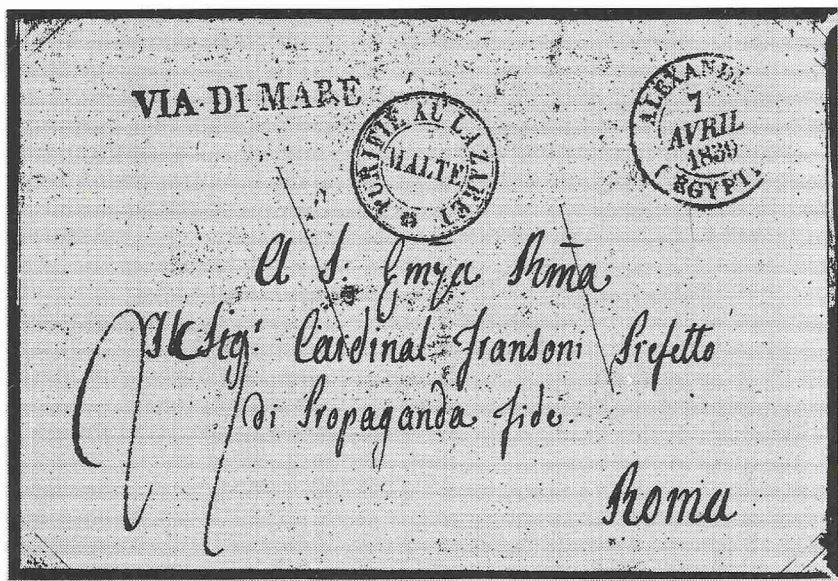 VIA DI MARE
PURIFIÉ AU LAZARET
MALTE
ALEXANDR
7
AVRIL
1839
( EGYPT
A S: Emza Rma
Il Sigr Cardinal Fransoni Prefetto
di Propaganda Fide.
Roma